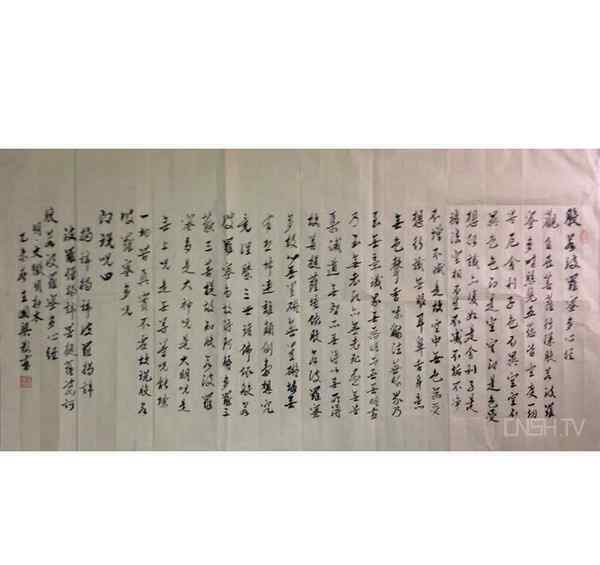 般若波羅蜜多心經
觀自在菩薩行深般若波羅
蜜多時照見五蘊皆空度一切
苦厄舍利子色不異空空不
異色色即是空空即是色受
想行識亦復如是舍利子是
諸法空相不生不滅不垢不淨
不增不減是故空中無色無受
想行識無眼耳鼻舌身意
無色聲香味觸法無眼界乃
至無意識界無無明亦無無明盡
乃至無老死亦無老死盡無苦
集滅道無智亦無得以無所得
故菩提薩埵依般若波羅蜜
多故心無罣礙無罣礙故無
有恐怖遠離顛倒夢想究
竟涅槃三世諸佛依般若
波羅蜜多故得阿耨多羅三
藐三菩提故知般若波羅
蜜多是大神咒是大明咒是
無上咒是無等等咒能除
一切苦真實不虛故說般若
波羅蜜多咒
即說咒曰
揭諦揭諦波羅揭諦
波羅僧揭諦菩提薩婆訶
般若波羅蜜多心經
乙未
CNSH.TV